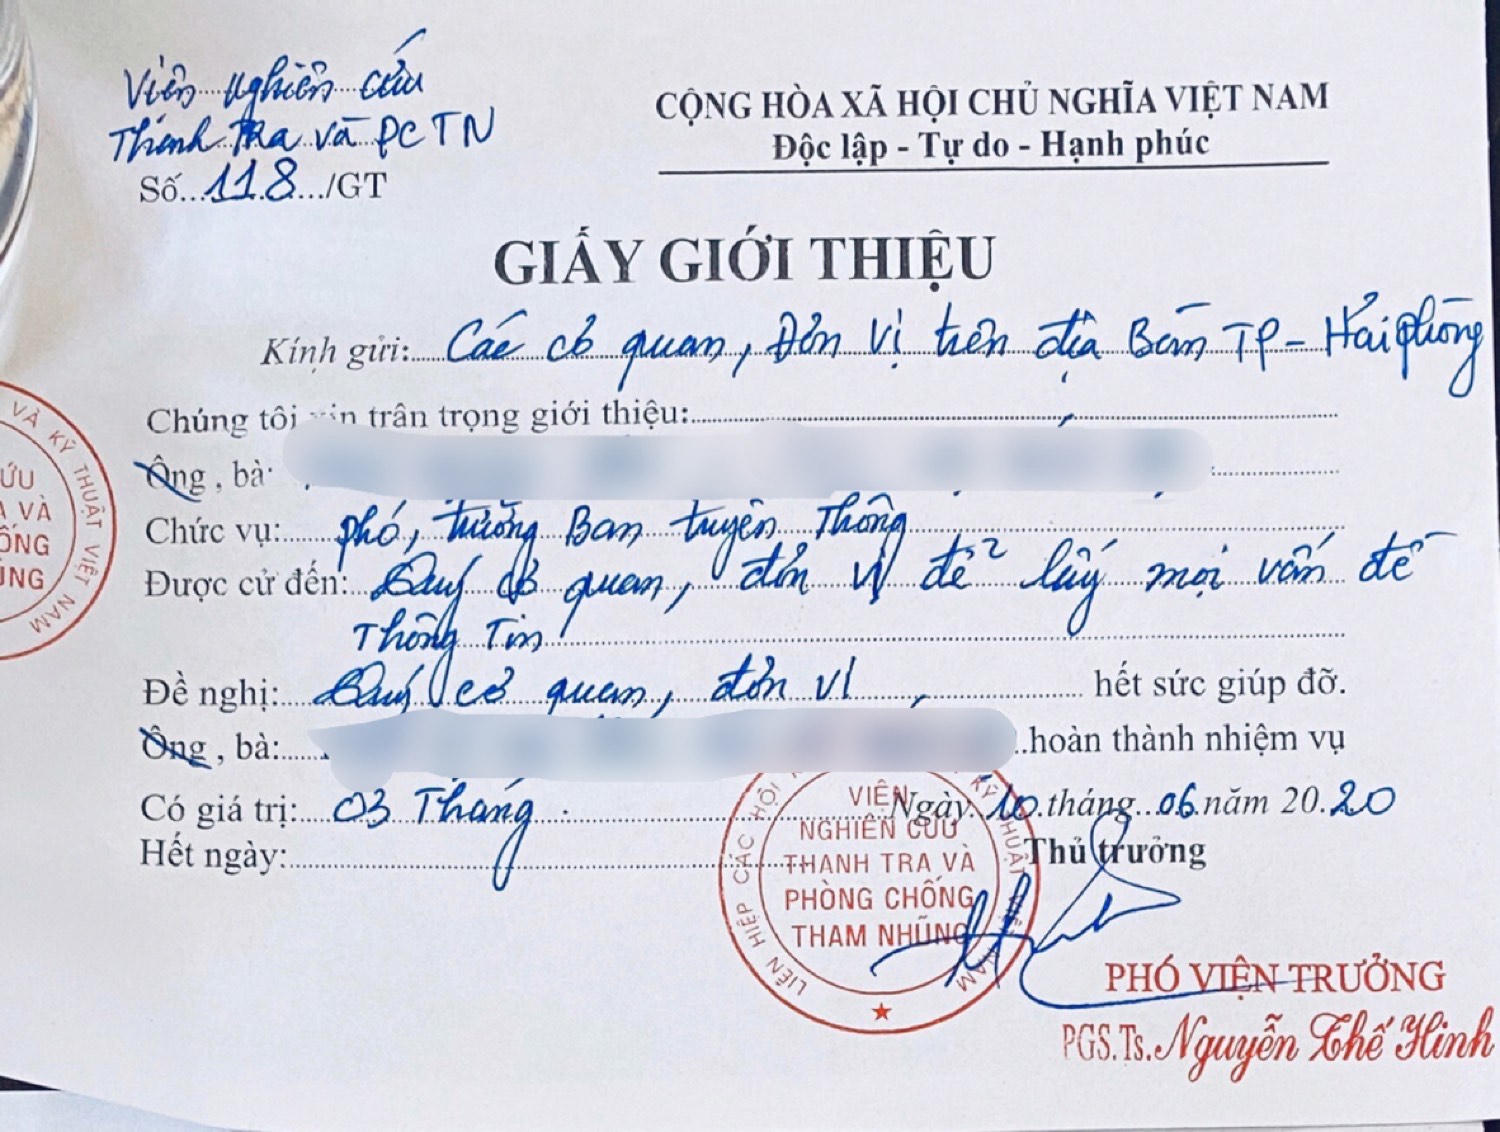 Viện nghiên cứu
Thanh Tra và PCTN
Số...118.../GT
CỘNG HÒA XÃ HỘI CHỦ NGHĨA VIỆT NAM
Độc lập - Tự do - Hạnh phúc
GIẤY GIỚI THIỆU
Kính gửi: Các cơ quan, Đơn vị trên địa Bàn TP - Hải phòng
Chúng tôi xin trân trọng giới thiệu:
Ông, bà:
Chức vụ: phó, trưởng Ban truyền Thông
Được cử đến: Quý cơ quan, đơn vị để lấy mọi vấn đề
Thông Tin
Đề nghị: Quý cơ quan, đơn vị, hết sức giúp đỡ.
Ông, bà: hoàn thành nhiệm vụ
Có giá trị: 03 Tháng.
Ngày 10 tháng 06 năm 2020
Hết ngày:
Thủ trưởng
LIÊN HIỆP CÁC HỘI KỸ THUẬT VIỆT NAM
VIỆN
NGHIÊN CỨU
THANH TRA VÀ
PHÒNG CHỐNG
THAM NHŨNG
PHÓ VIỆN TRƯỞNG
PGS.Ts. Nguyễn Thế Hinh
VÀ KỸ THUẬT VIỆT NAM
ỨU
A VÀ
ỐNG
ŨNG